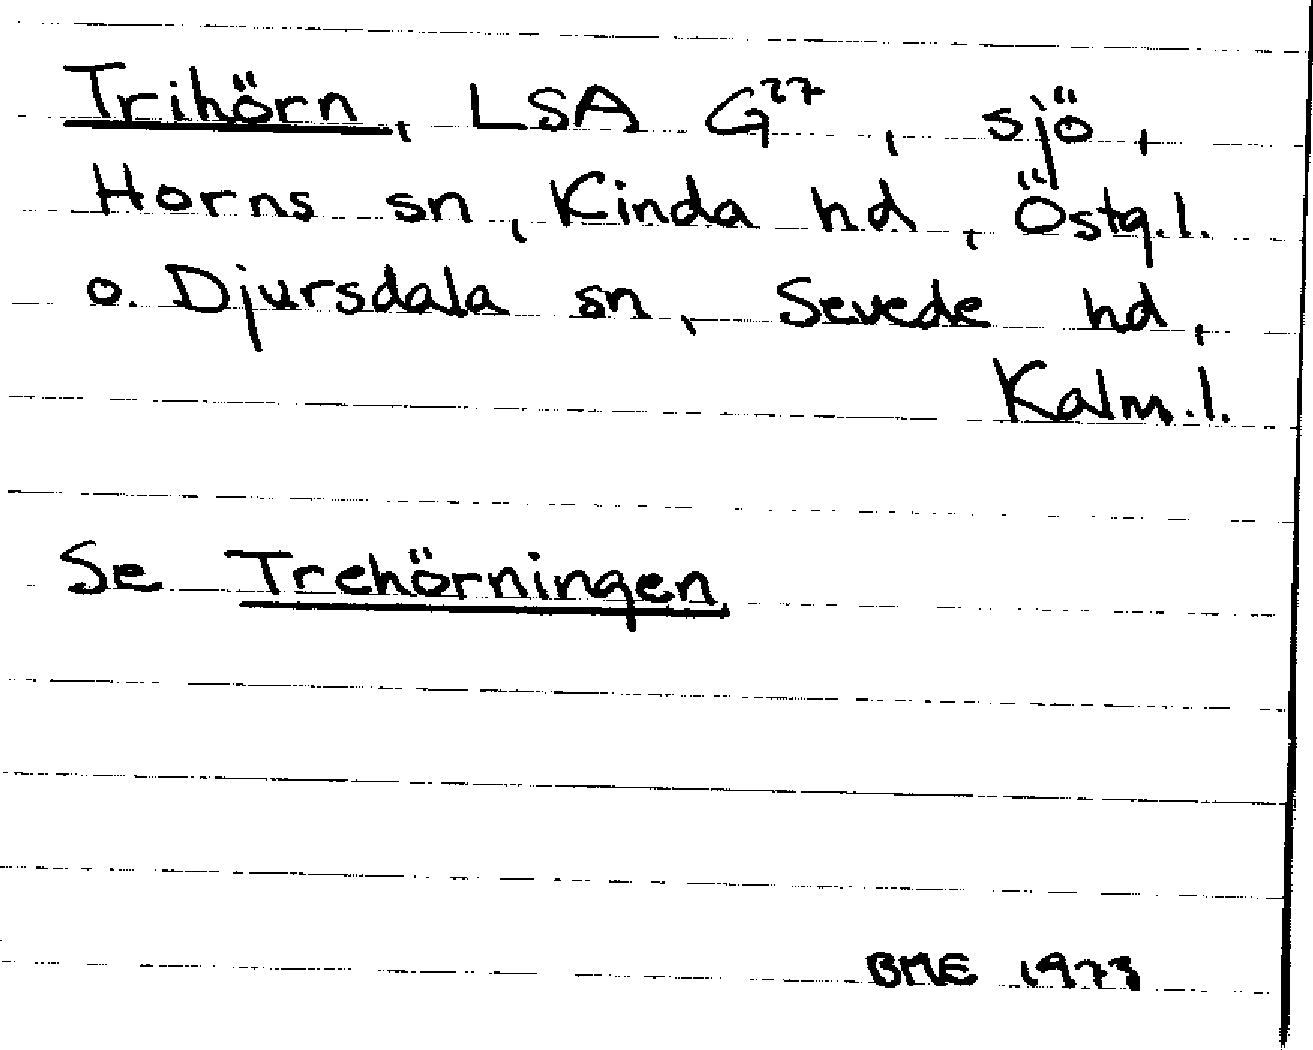 Trihörn, LSA G27, sjö,
Horns sn, Kinda hd, Östg.l.
o. Djursdala sn, Sevede hd,
Kalm.l.
Se Trehörningen
BME 1973